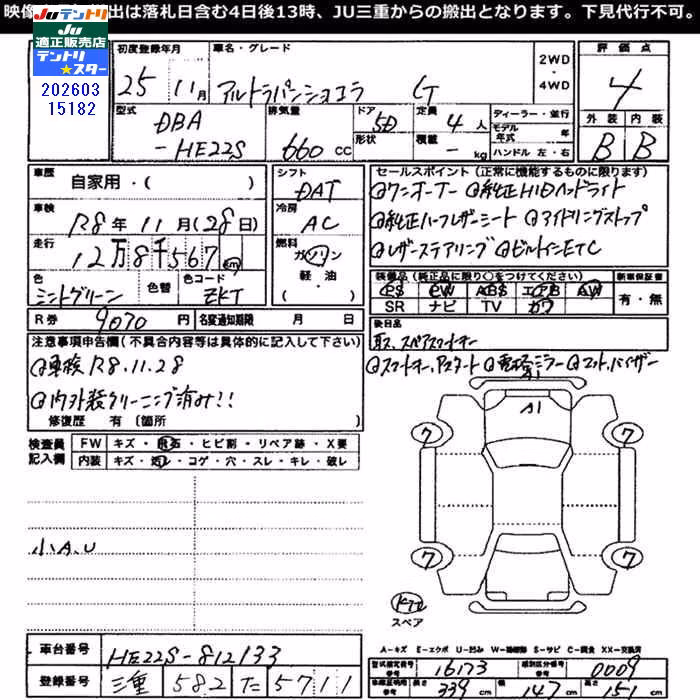 映像 出は落札日含む4日後13時、JU三重からの搬出となります。下見代行不可。
JUテントリ
JU適正販売店
テントリ★スター
202603
15182
初度登録年月
25年 11月
車名・グレード
アルトラパンショコラ G
2WD・4WD
評価点
4
型式
DBA
-HE22S
排気量
660 CC
ドア
5D
形状
定員
4人
積載
- kg
ディーラー・並行
モデル年式 年
ハンドル 左・右
外装 内装
B B
車歴
自家用・( )
車検
R8年11月(28日)
走行
12万8千567 km
色
ミントグリーン
色替
色コード
ZKT
R券
9070円
名変通知期限 月 日
シフト
DAT
冷房
AC
燃料
ガソリン
軽・油
・( )
セールスポイント(正常に機能するものに限ります)
◎ワンオーナー ◎純正HIDヘッドライト
◎純正ハーフレザーシート ◎アイドリングストップ
◎レザーステアリング ◎ビルトインETC
装備品(純正品に限り○をつけてください)
新車保証書
PS PW ABS エアB AW
SR ナビ TV カワ
有・無
後日品
取、スペアスマートキー
◎スマートキー、Pスタート ◎電格ミラー ◎マット、バイザー
注意事項申告欄(不具合内容等は具体的に記入して下さい)
◎車検R8.11.28
◎内外装クリーニング済み!!
修復歴 有 〔箇所 〕
検査員記入欄
FW キズ・飛石・ヒビ割・リペア跡・X要
内装 キズ・汚レ・コゲ・穴・スレ・キレ・破レ
小A.U
A1
A1
7
7
7
7
スペア
A-キズ E-エクボ U-凹み W-補修跡 S-サビ C-腐食 XX-交換済
車台番号
HE22S-812133
登録番号
三重 582 た 5711
型式指定番号 参考
16173
類別区分番号 参考
0009
車庫証明用 参考
長さ 339 cm
幅 147 cm
高さ 151 cm